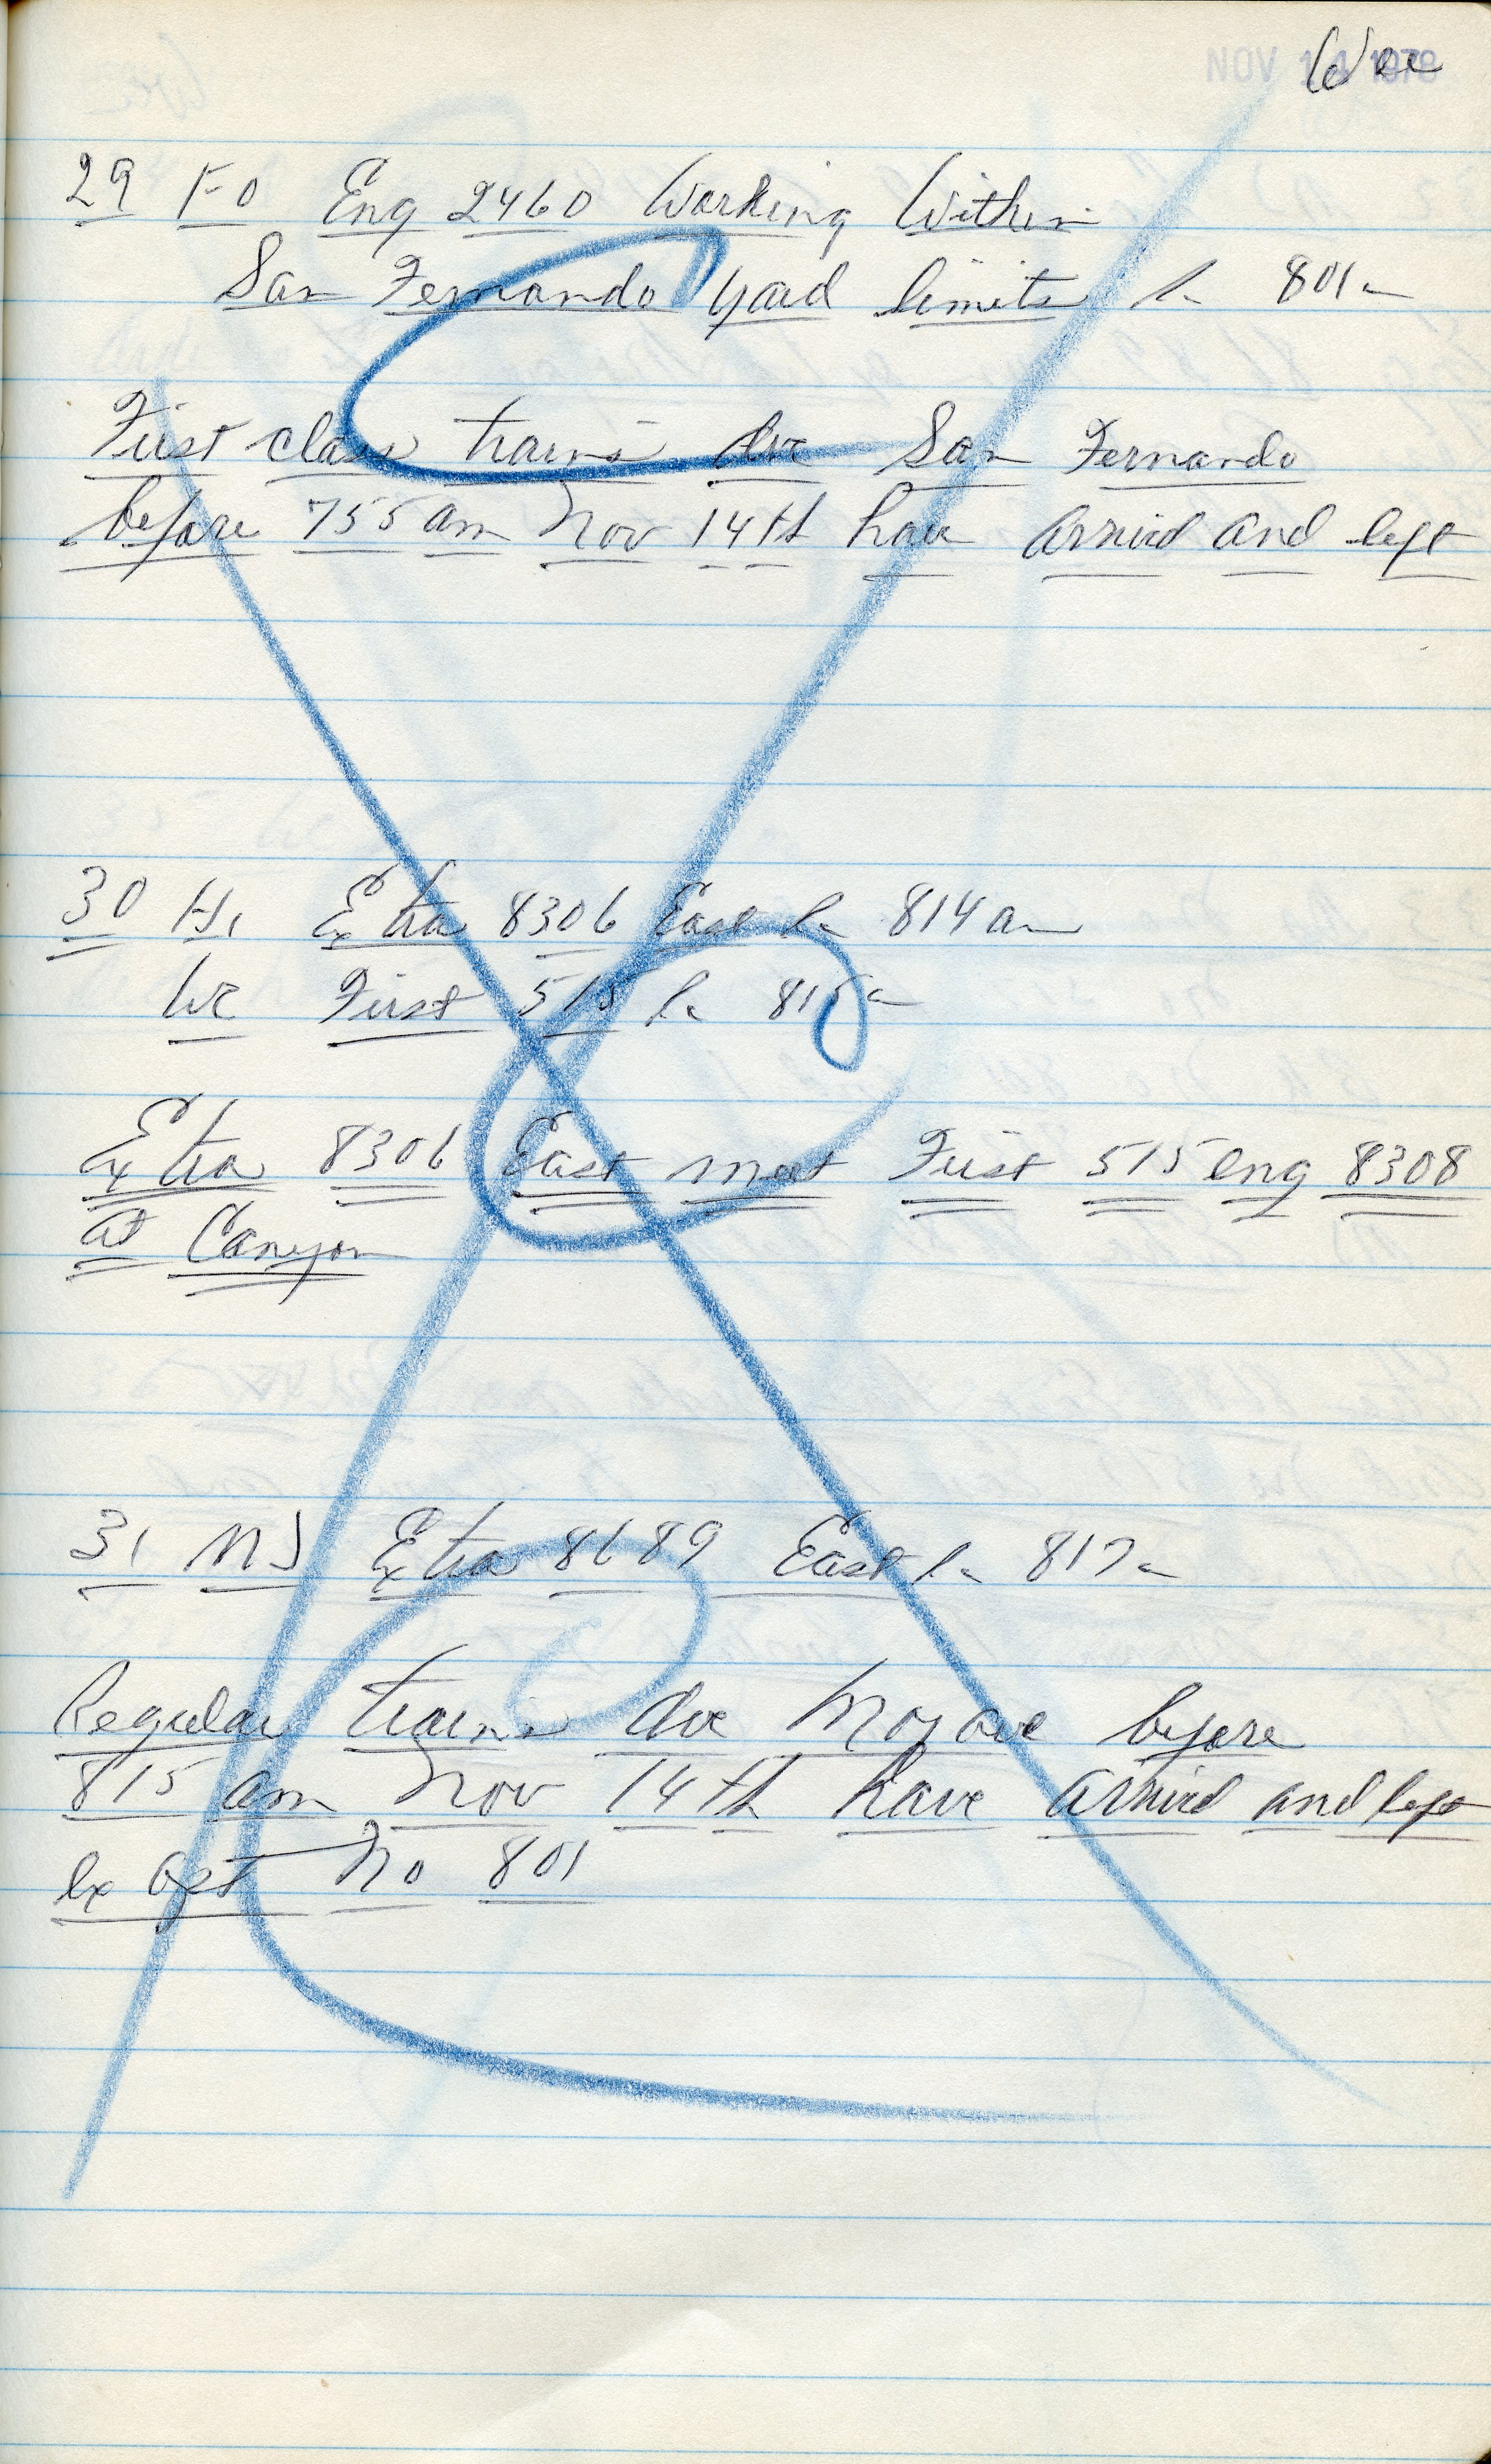 NOV 14 1978
29 FO Eng 2460 Working Within
San Fernando yard limits 801a
First class trains due San Fernando
before 755 am Nov 14th have arrived and left
30 Hi Extra 8306 East 814am
We First 515 815a
Extra 8306 East meet First 515 eng 8308
at Canyon
31 MJ Extra 8689 East 817a
Regular trains due Mojave before
815 am Nov 14th have arrived and left
Except No 801